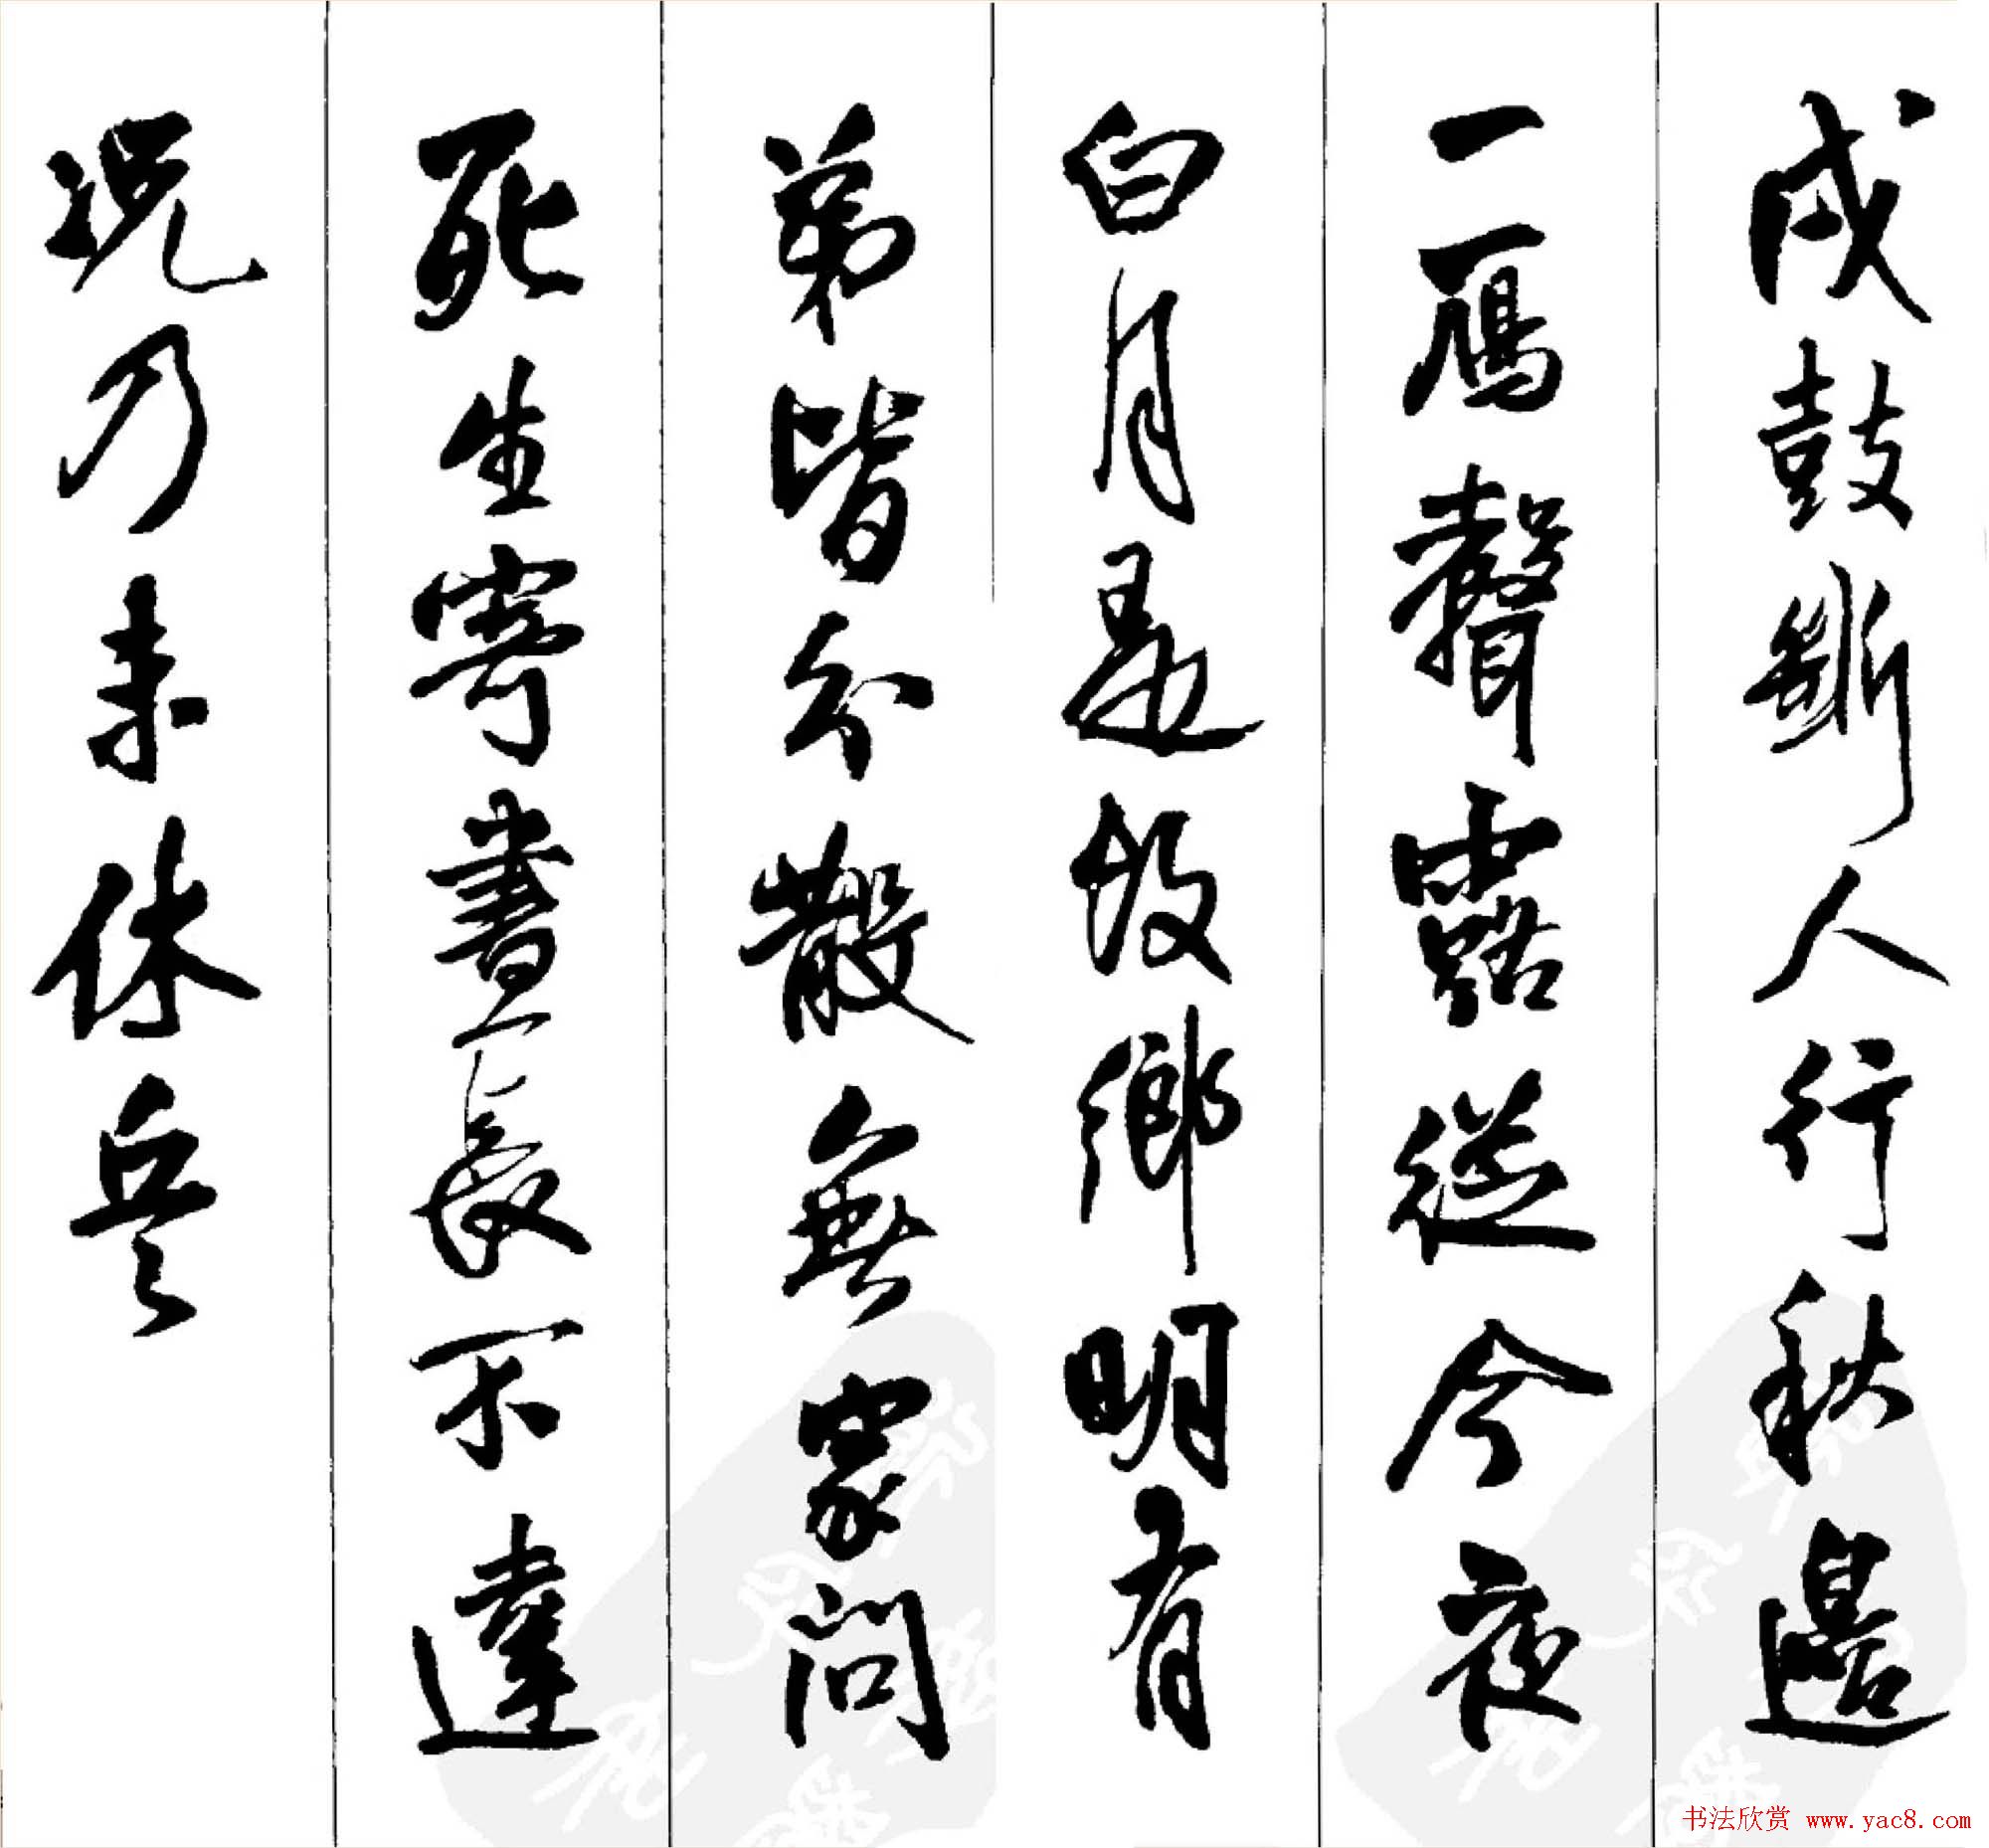 戍鼓斷人行秋邊
一雁聲露從今夜
白月是故鄉明有
弟皆分散無家問
死生寄書長不達
況乃未休兵
书法欣赏 www.yac8.com